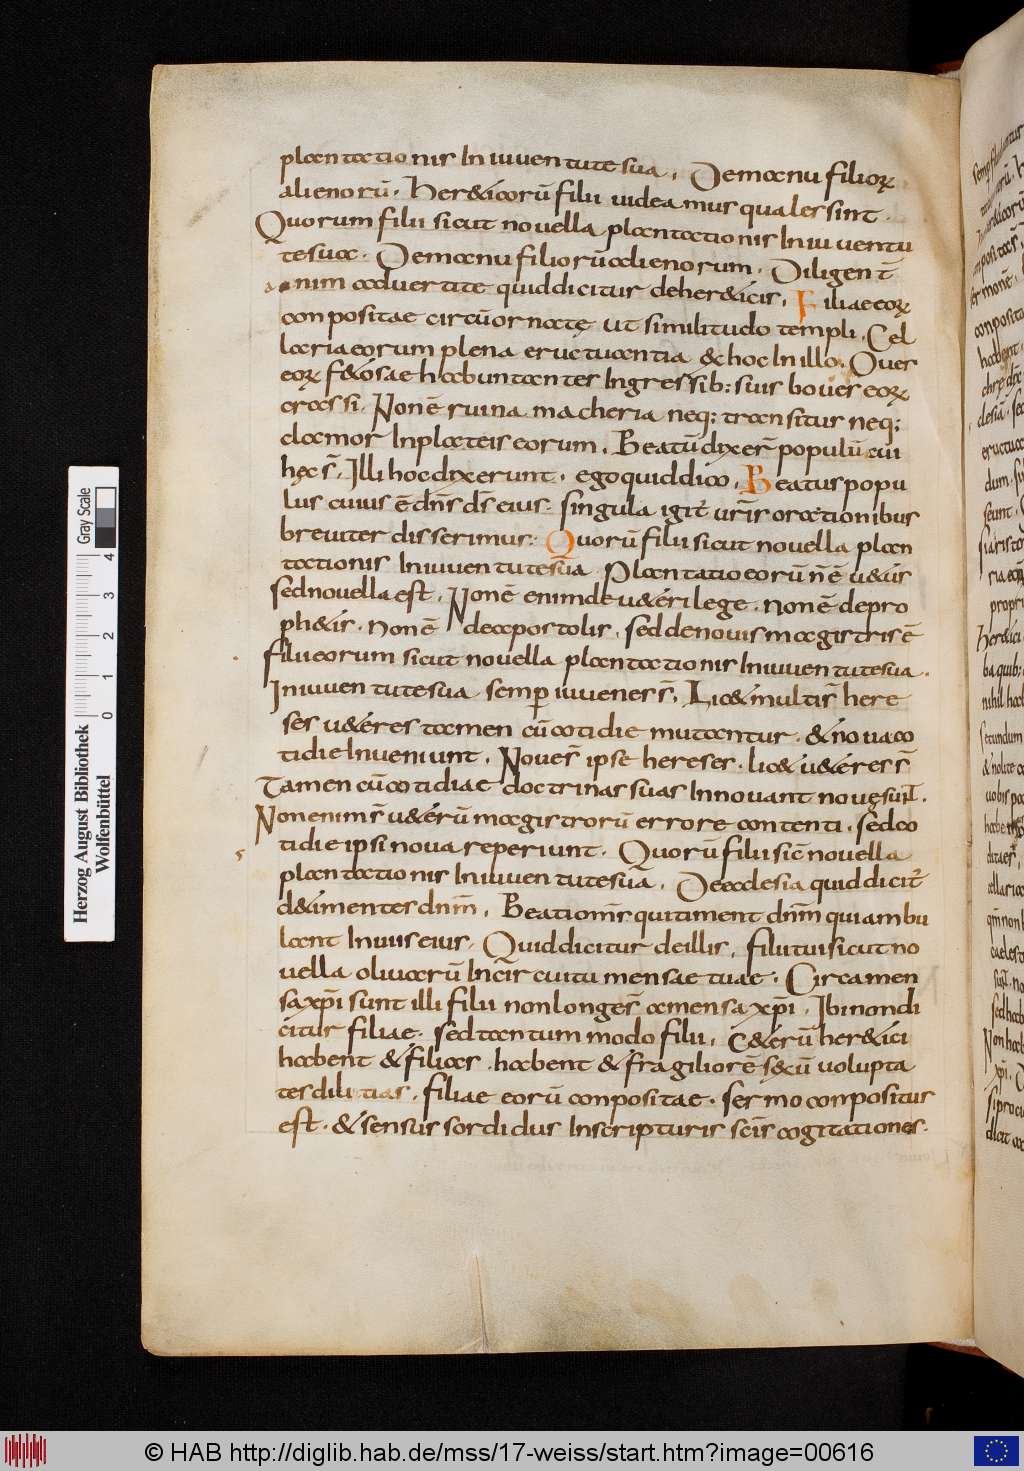 plantationis In iuuentute sua. De manu filioꝝ
alienorū. Her&icorū filii uideamus quales sint.
Quorum filii sicut nouella plantationis In iuuentu
te sua. De manu filiorū alienorum. Diligent̄
enim aduertite quid dicitur de her&icis. Filiae eoꝝ
conpositae circūornatę ut similitudo templi. Cel
laria eorum plena eructuantia & hoc In illo. Oues
eoꝝ f&osae habuntantes Ingressib: suis boues eoꝝ
crassi. Non ē ruina maceria neq; transitus neq;
clamor In plateis eorum. Beatū dixer̄ populū cui
hęc s̄. Illi hoc dixerunt. ego quid dico. Beatus popu
lus cuius ē dn̄s ds̄ eius. singula igit̄ ur̄is orationibus
breuiter disserimus. Quorū filii sicut nouella plan
tationis In iuuentute sua Plantatio eorū n̄ ē u&us
sed nouella est. Non ē enim de u&eri lege. non ē de pro
ph&is. non ē de apostolis. sed de nouis magistris ē
filii eorum sicut nouella plantationis In iuuentute sua.
In iuuentute sua semp iuuenes s̄. Lic& multis̄ here
ses u&eres tamen cū cotidie mutantur. & noua co
tidie Inueniunt. Noues̄ ipse hereses. lic& u&eres s̄
Tamen cū cotidiae doctrinas suas Innouant nouę sunt.
Non enim s̄ u&erū magistrorū errore contenti. sed co
tidie ipsi noua reperiunt. Quorū filii sic̄ nouella
plantationis In iuuentute suā. De ecclesia quid dicit̄
d&imentes dn̄m. Beati om̄s qui timent dn̄m qui ambu
lant In uiis eius. Quid dicitur de illis. filii tui sicut no
uella oliuarū In cir̄cuitu mensae tuae. Circa men
sa xp̄i sunt illi filii non longe s̄ a mensa xp̄i. Ibi non di
citur filiae. sed tantummodo filii. C&erū her&ici
habent & filias. habent & fragiliorē sexū uolupta
tes dilitias. filiae eorū conpositae. sermo conpositus
est. & sensus sordidus In scripturis sc̄is cogitationes.
Gray Scale
0 1 2 3 4
Herzog August Bibliothek
Wolfenbüttel
© HAB http://diglib.hab.de/mss/17-weiss/start.htm?image=00616